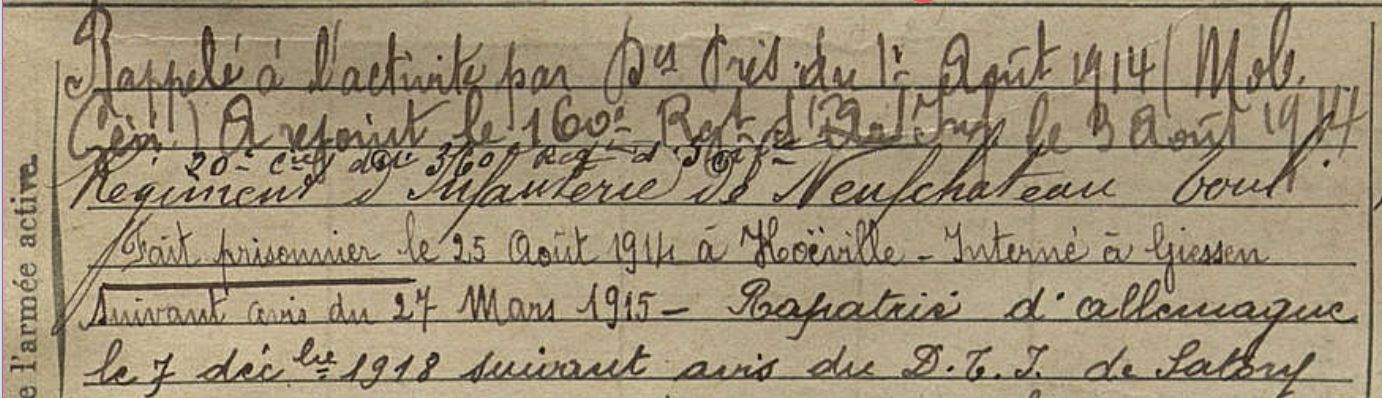 Rappelé à l'activité par Des Prés. du 1r Août 1914 (Mob.
Gén.) A rejoint le 160e Rgt d' le 3 Août 1914
20e 360e Regt d'Infie
Régiment d'Infanterie de Neufchateau Toul
Fait prisonnier le 25 Août 1914 à Hoëville - Interné à Giessen
suivant avis du 27 Mars 1915 - Rapatrié d'allemagne
le 7 décbre 1918 suivant avis du D.T.I. de Satory
e l'armée active.